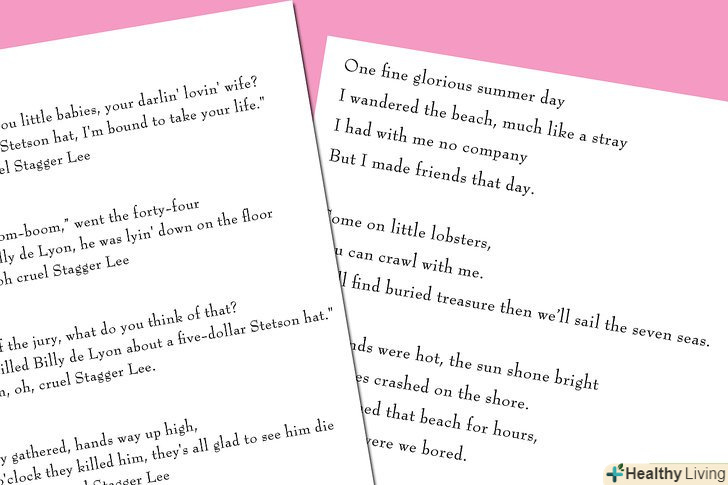 ou little babies, your darlin' lovin' wife?
Stetson hat, I'm bound to take your life."
el Stagger Lee
om-boom," went the forty-four
lly de Lyon, he was lyin' down on the floor
oh cruel Stagger Lee
f the jury, what do you think of that?
illed Billy de Lyon about a five-dollar Stetson hat."
n, oh, cruel Stagger Lee.
y gathered, hands way up high,
o'clock they killed him, they's all glad to see him die
el Stagger Lee
One fine glorious summer day
I wandered the beach, much like a stray
I had with me no company
But I made friends that day.
Come on little lobsters,
u can crawl with me.
ll find buried treasure then we'll sail the seven seas.
nds were hot, the sun shone bright
es crashed on the shore.
ed that beach for hours,
were we bored.
Healthy Living